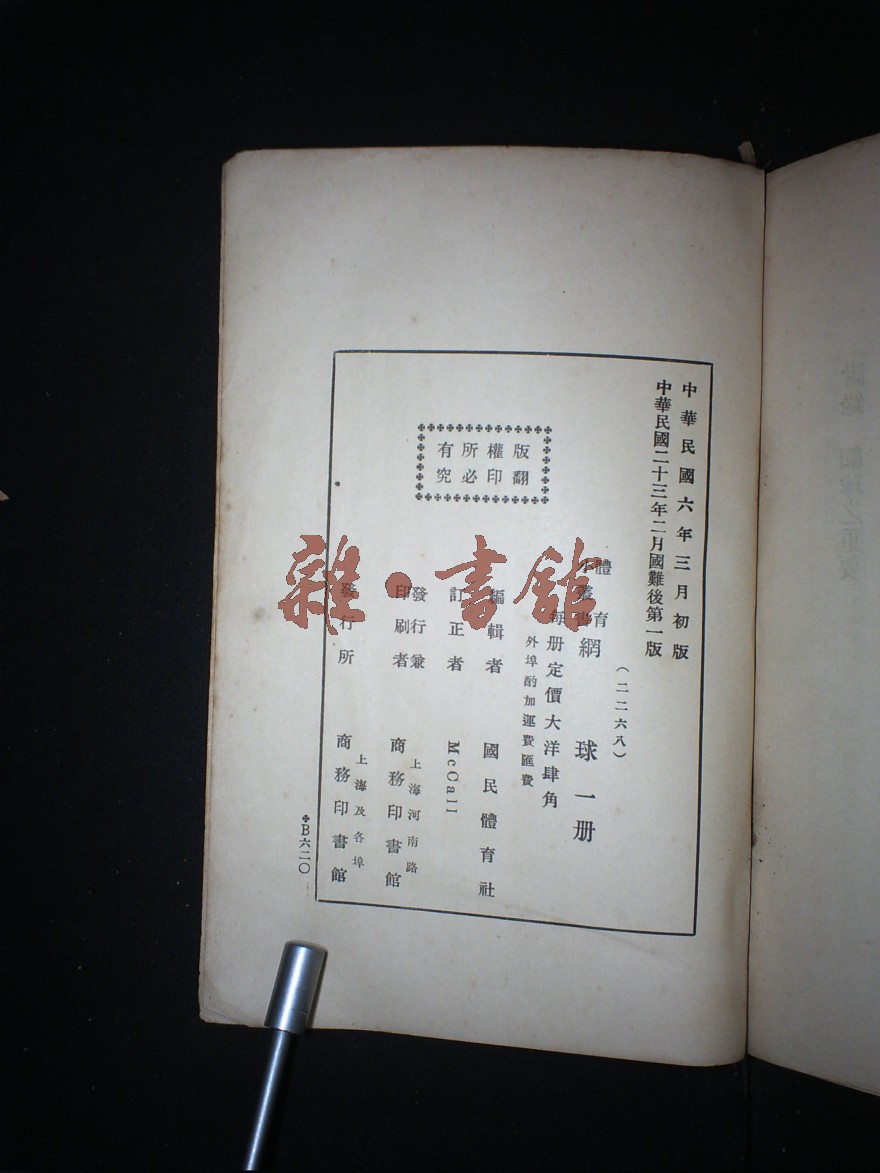 中華民國六年三月初版
中華民國二十三年二月國難後第一版
(二二六八)
體育
小叢書
網球一册
每册定價大洋肆角
外埠酌加運費匯費
版權所有
翻印必究
編輯者 國民體育社
訂正者 McCall
發行兼印刷者 上海河南路 商務印書館
發行所 上海及各埠 商務印書館
B六二〇
雜·書館